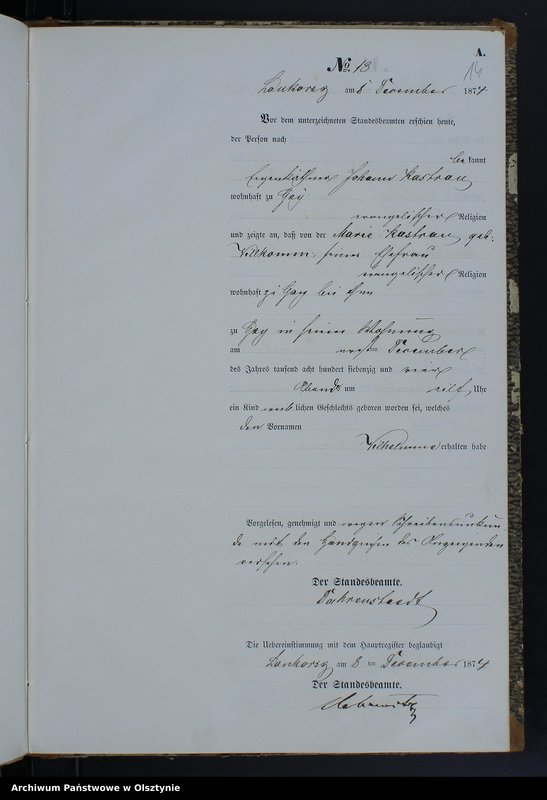 A.
No. 13.
14
Lonkorsz am 8 December 1874
Vor dem unterzeichneten Standesbeamten erschien heute,
der Person nach
be kannt
Eigenkäthner Johann Kastrau
wohnhaft zu Gay
evangelischer Religion
und zeigte an, daß von der Marie Kastrau geb.
Willkomm, seiner Ehefrau
evangelischer Religion
wohnhaft zu Gay bei ihm
zu Gay in seiner Wohnung
am ersten December
des Jahres tausend acht hundert siebenzig und vier
Abends um eilf Uhr
ein Kind weib lichen Geschlechts geboren worden sei, welches
den Vornamen
Wilhelmine erhalten habe
Vorgelesen, genehmigt und wegen Schreibensunkun
de mit den Handzeichen des Anzeigenden
versehen.
Der Standesbeamte.
Die Uebereinstimmung mit dem Hauptregister beglaubigt
Lonkorsz am 8 ten December 1874
Der Standesbeamte.
Archiwum Państwowe w Olsztynie